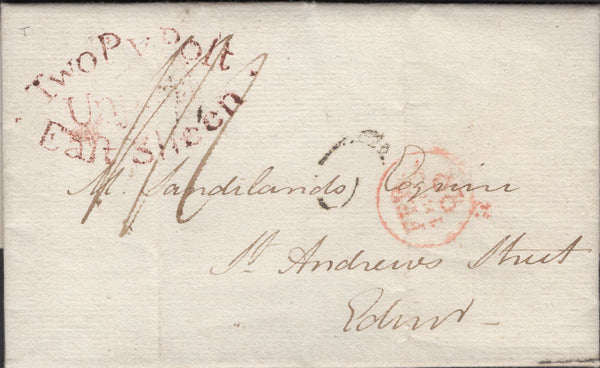 Two Py Poſt
Unp
Eaſt Sheen
Mr. Sandilands Esquire
St. Andrews Street
Edinr